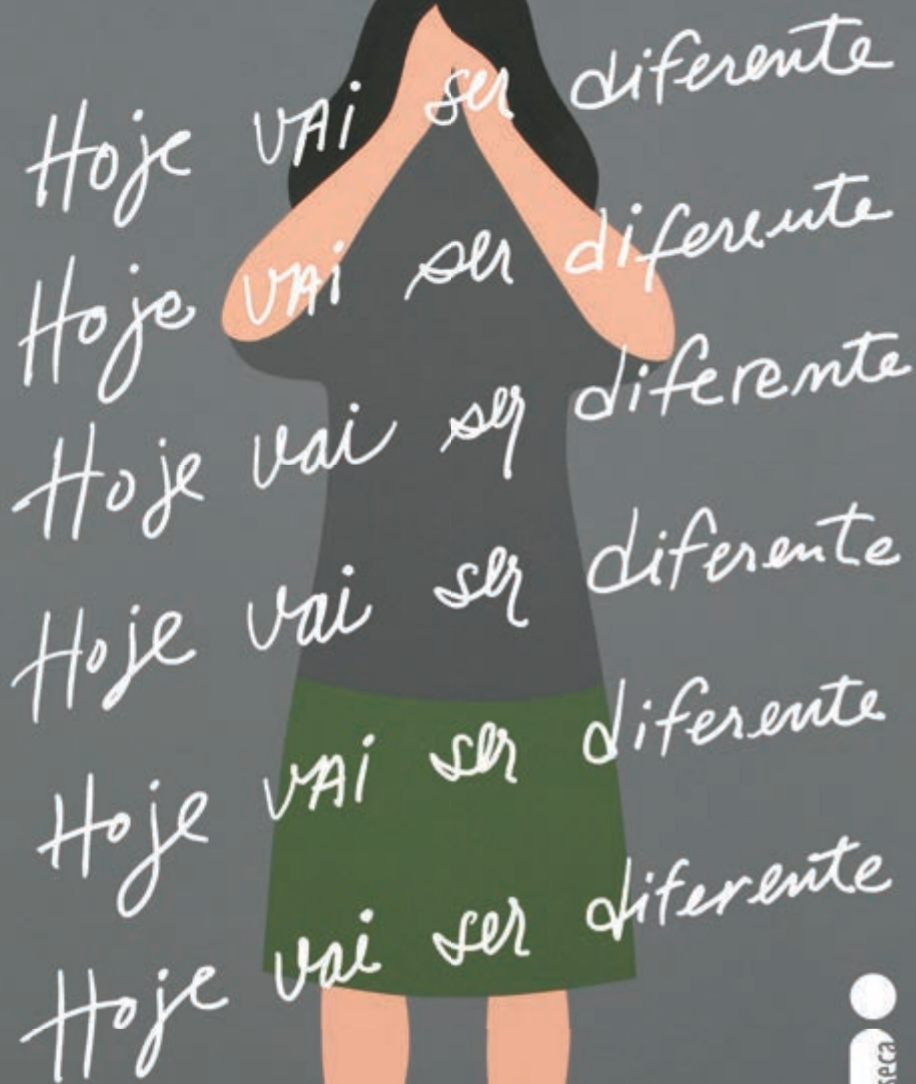 Hoje VAi ser diferente
Hoje VAi ser diferente
Hoje vai ser diferente
Hoje vai ser diferente
Hoje VAi ser diferente
Hoje vai ser diferente